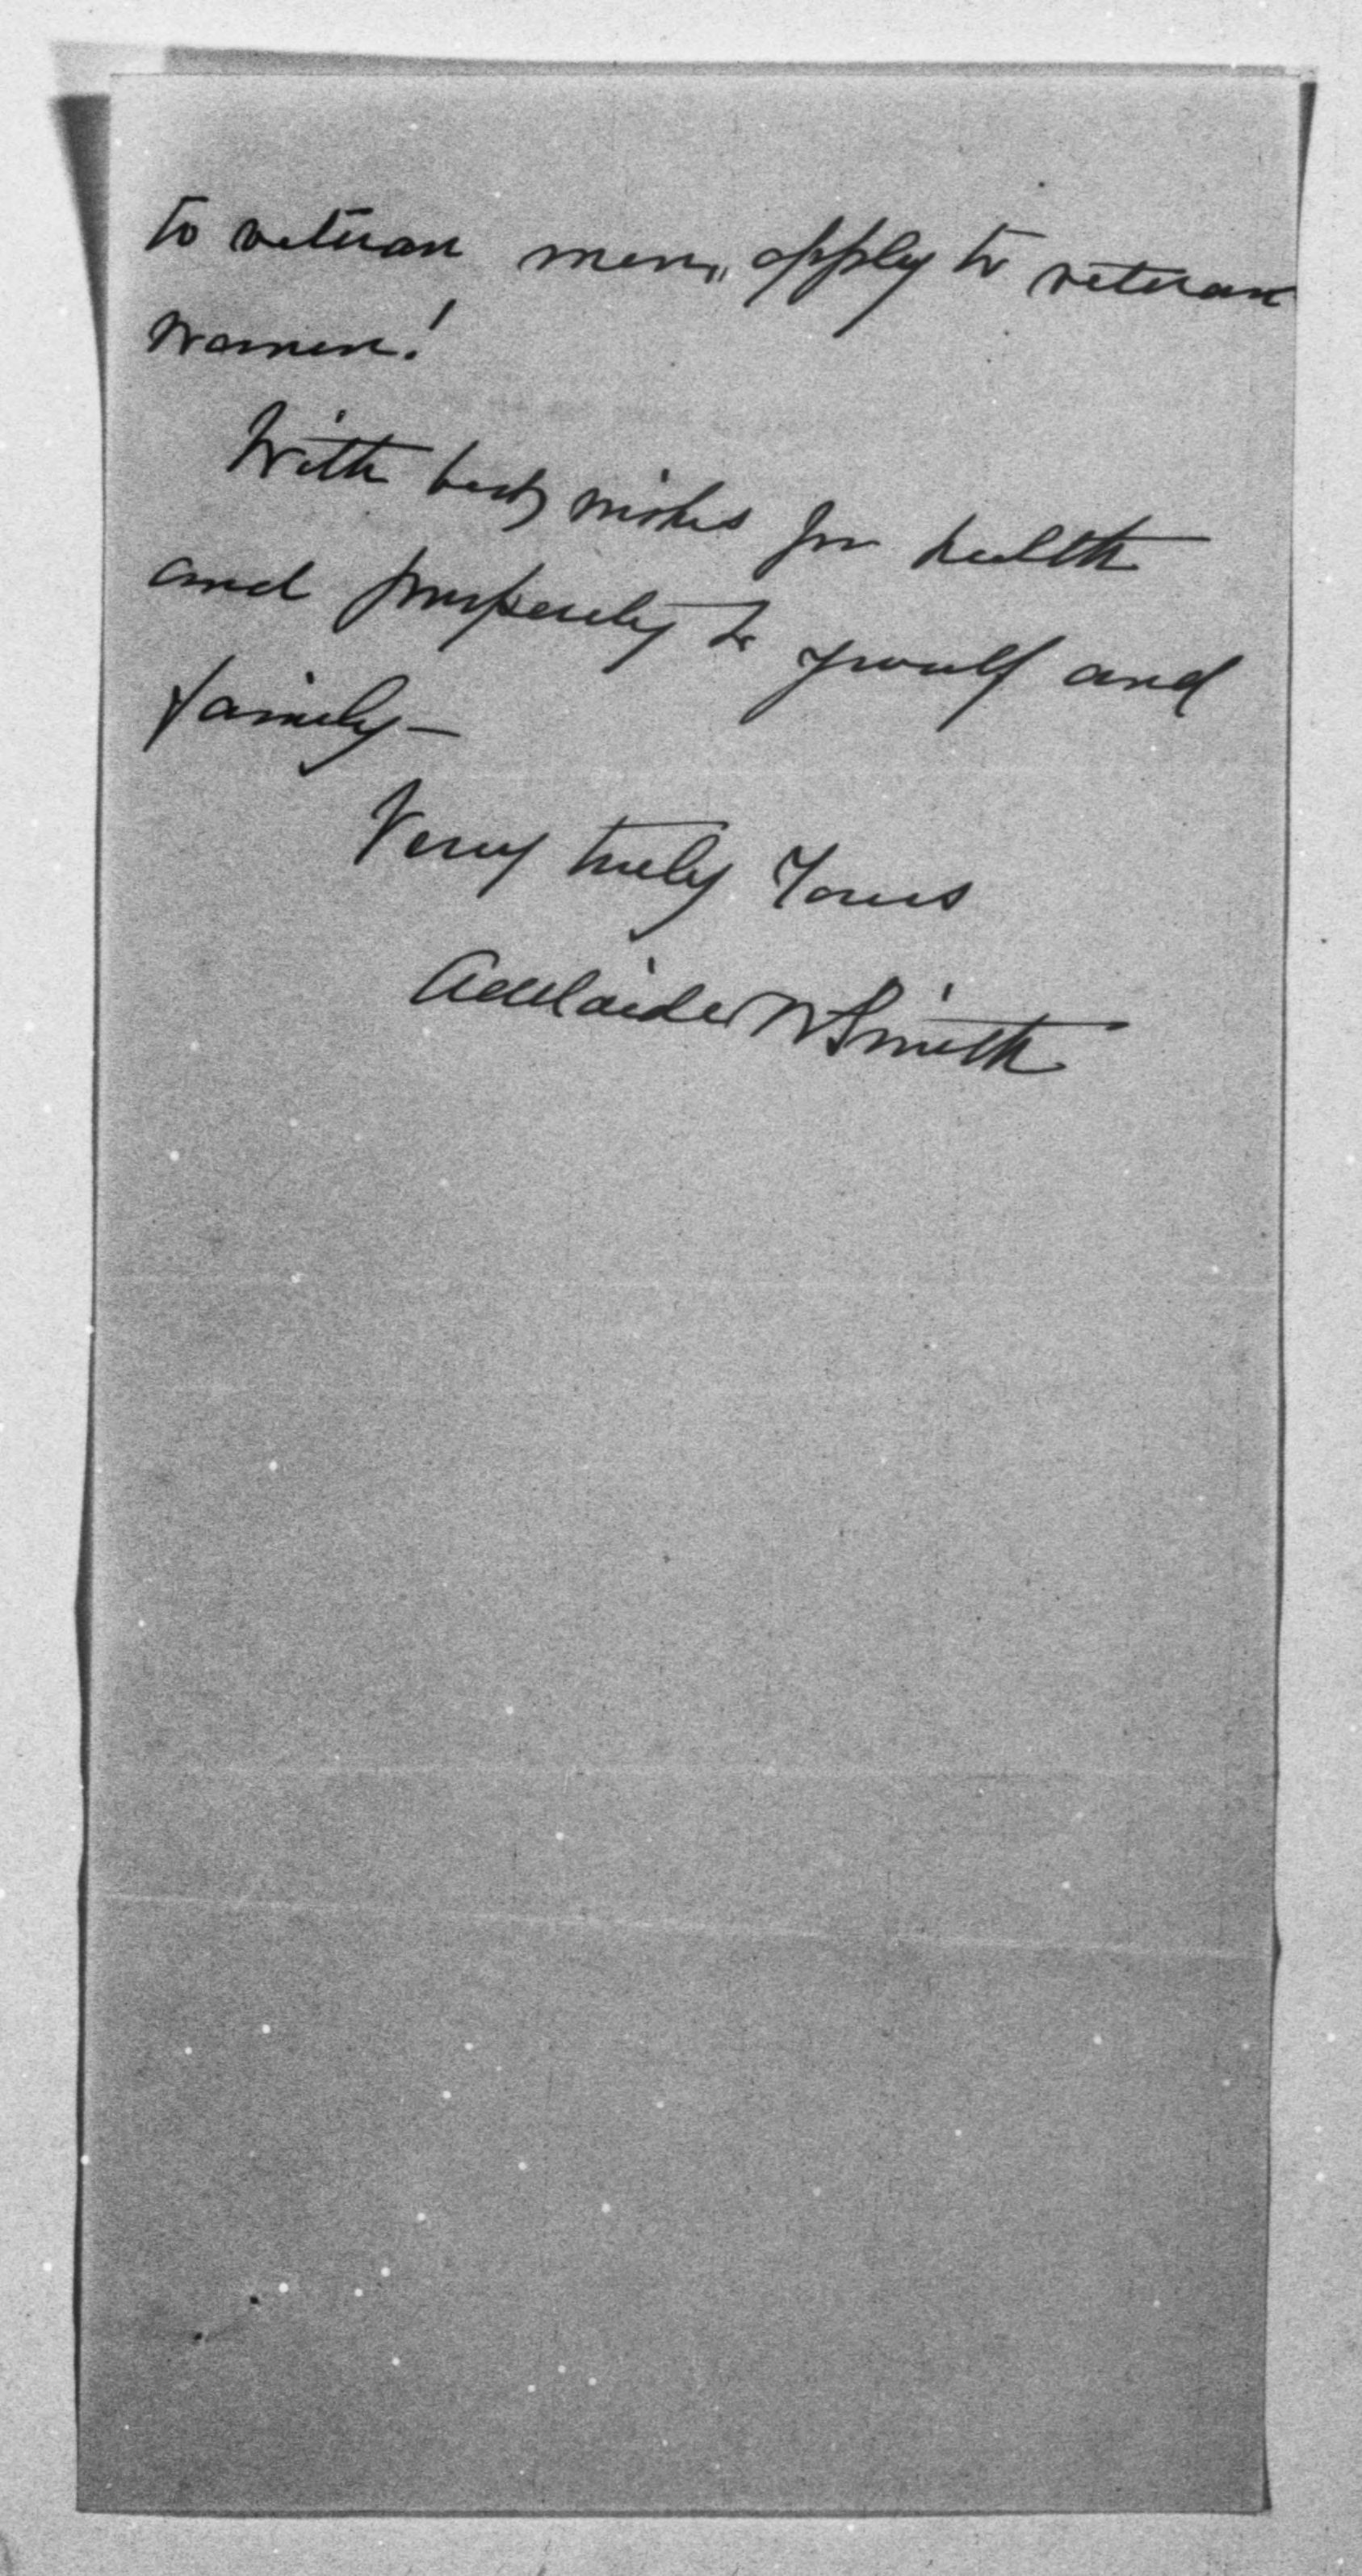 to veteran men, apply to veteran
women!
With best wishes for health
and prosperity to yourself and
family—
Very truly Yours
Adelaide W Smith